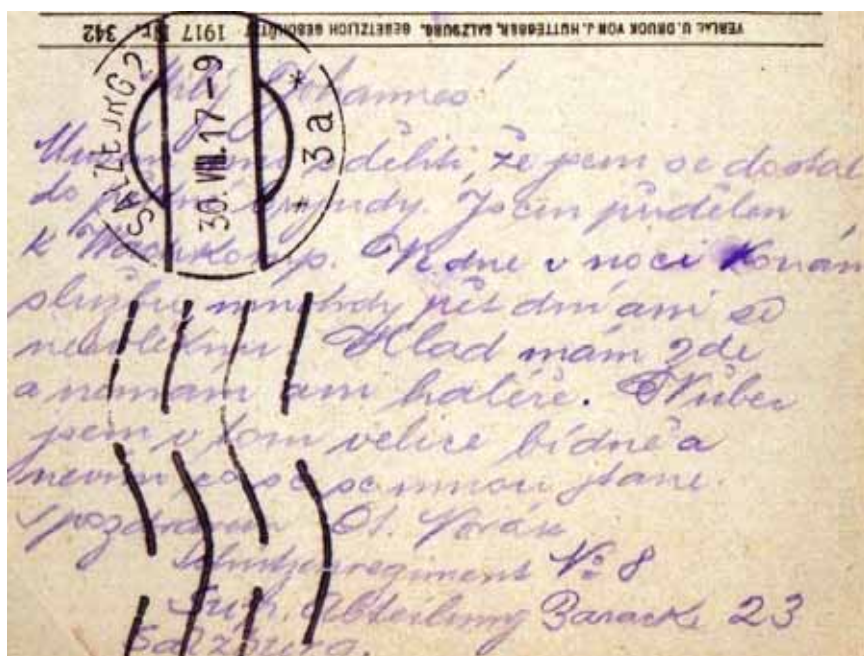 VERLAG U. DRUCK VON J. HUTTEGGER, SALZBURG. GESETZLICH GESCHÜTZT 1917 Nr. 342
SALZBURG 2
30. VIII. 17-9
* 3a *
Milý Johannes!
Musím sděliti, že jsem se dostal
do Jsem přidělen
k Ve dne v noci konám
službu mnohdy pět dní ani se
nesvléknu. Hlad mám zde
a nemám ani haléře. Vůbec
jsem v tom velice bídně a
nevím co se se mnou stane.
S pozdravem Novák
Schützenregiment No 8
Abteilung Barack 23
Salzburg.